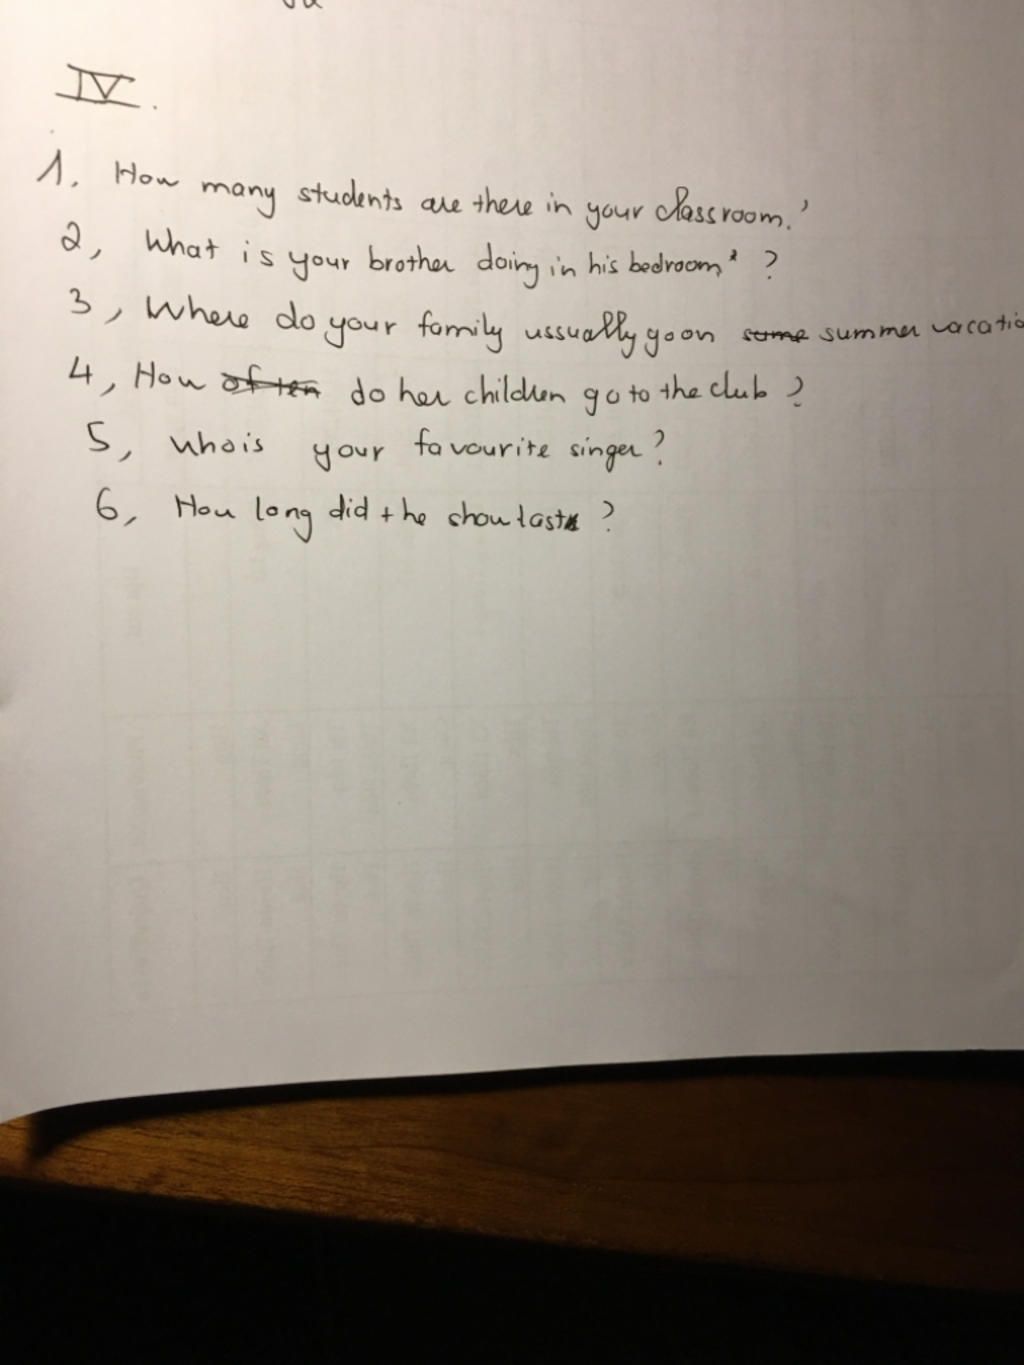 IV.
1. How many students are there in your classroom.'
2, What is your brother doing in his bedroom ?
3, Where do your family ussually go on some summer vacatio
4, How often do her children go to the club ?
5, who is your favourite singer ?
6, How long did the show last ?